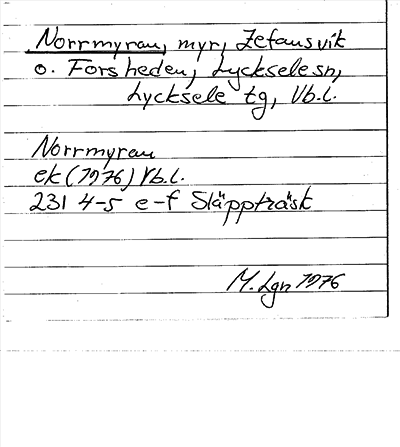 Norrmyran, myr, Zefansvik
o. Forsheden, Lycksele sn,
Lycksele tg, Vb.l.
Norrmyran
ek (1976) Vb.l.
231 4-5 e-f Släppträsk
M. Lgn 1976